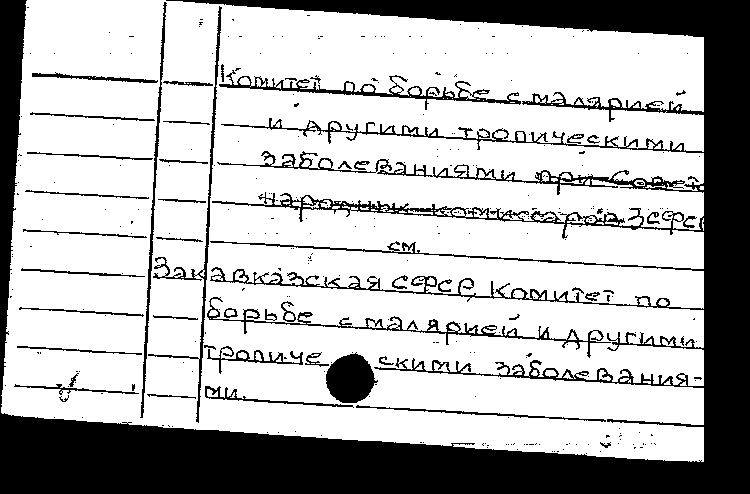 Комитет по борьбе с малярией
и другими тропическими
заболеваниями при Совет
народных комиссаров ЗСФСР
см.
Закавказская СФСР, Комитет по
борьбе с малярией и другими
тропическими заболевания-
ми.